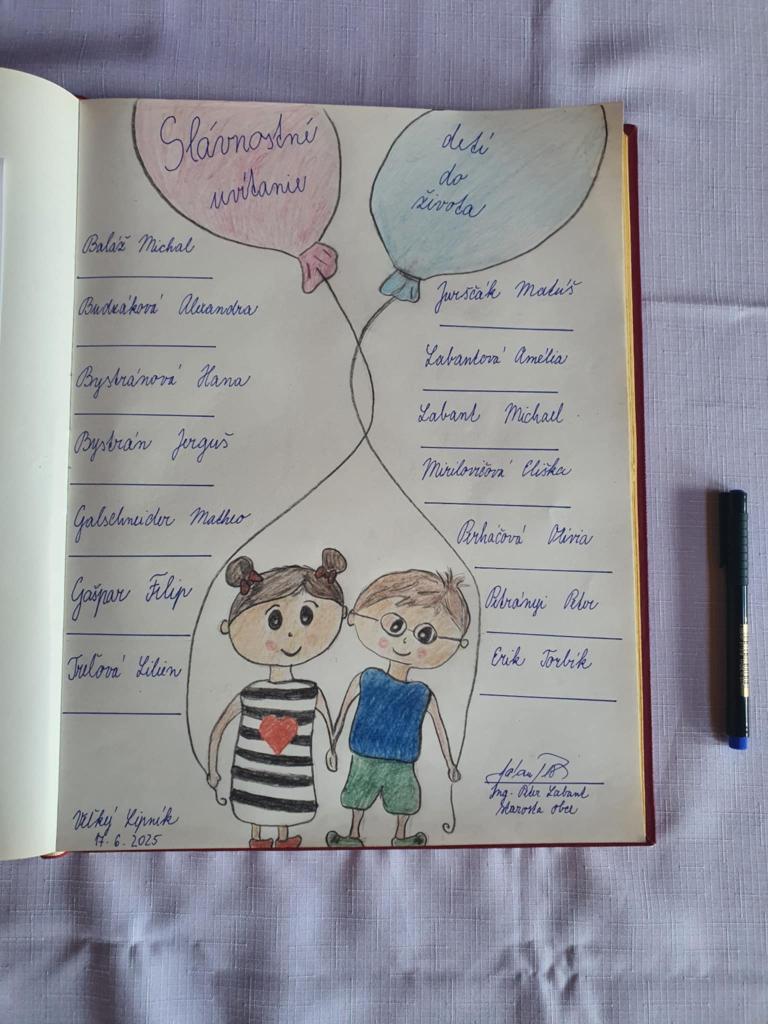 Slávnostné
uvítanie
detí
do
života
Baláž Michal
Budzáková Alexandra
Bystránová Hana
Bystrán Jerguš
Galschneider Matheo
Gašpar Filip
Treľová Lilien
Jurščák Matúš
Labantová Amélia
Labant Michael
Mirilovičová Eliška
Perháčová Olívia
Petrányi Peter
Erik Torbík
Ing. Peter Labant
starosta obce
Veľký Lipník
17.6.2025